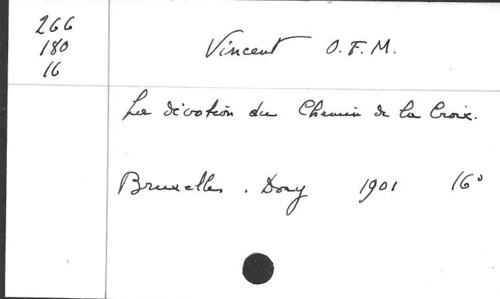 266
180
16
Vincent O.F.M.
La dévotion du Chemin de la Croix.
Bruxelles. Dony 1901 16°